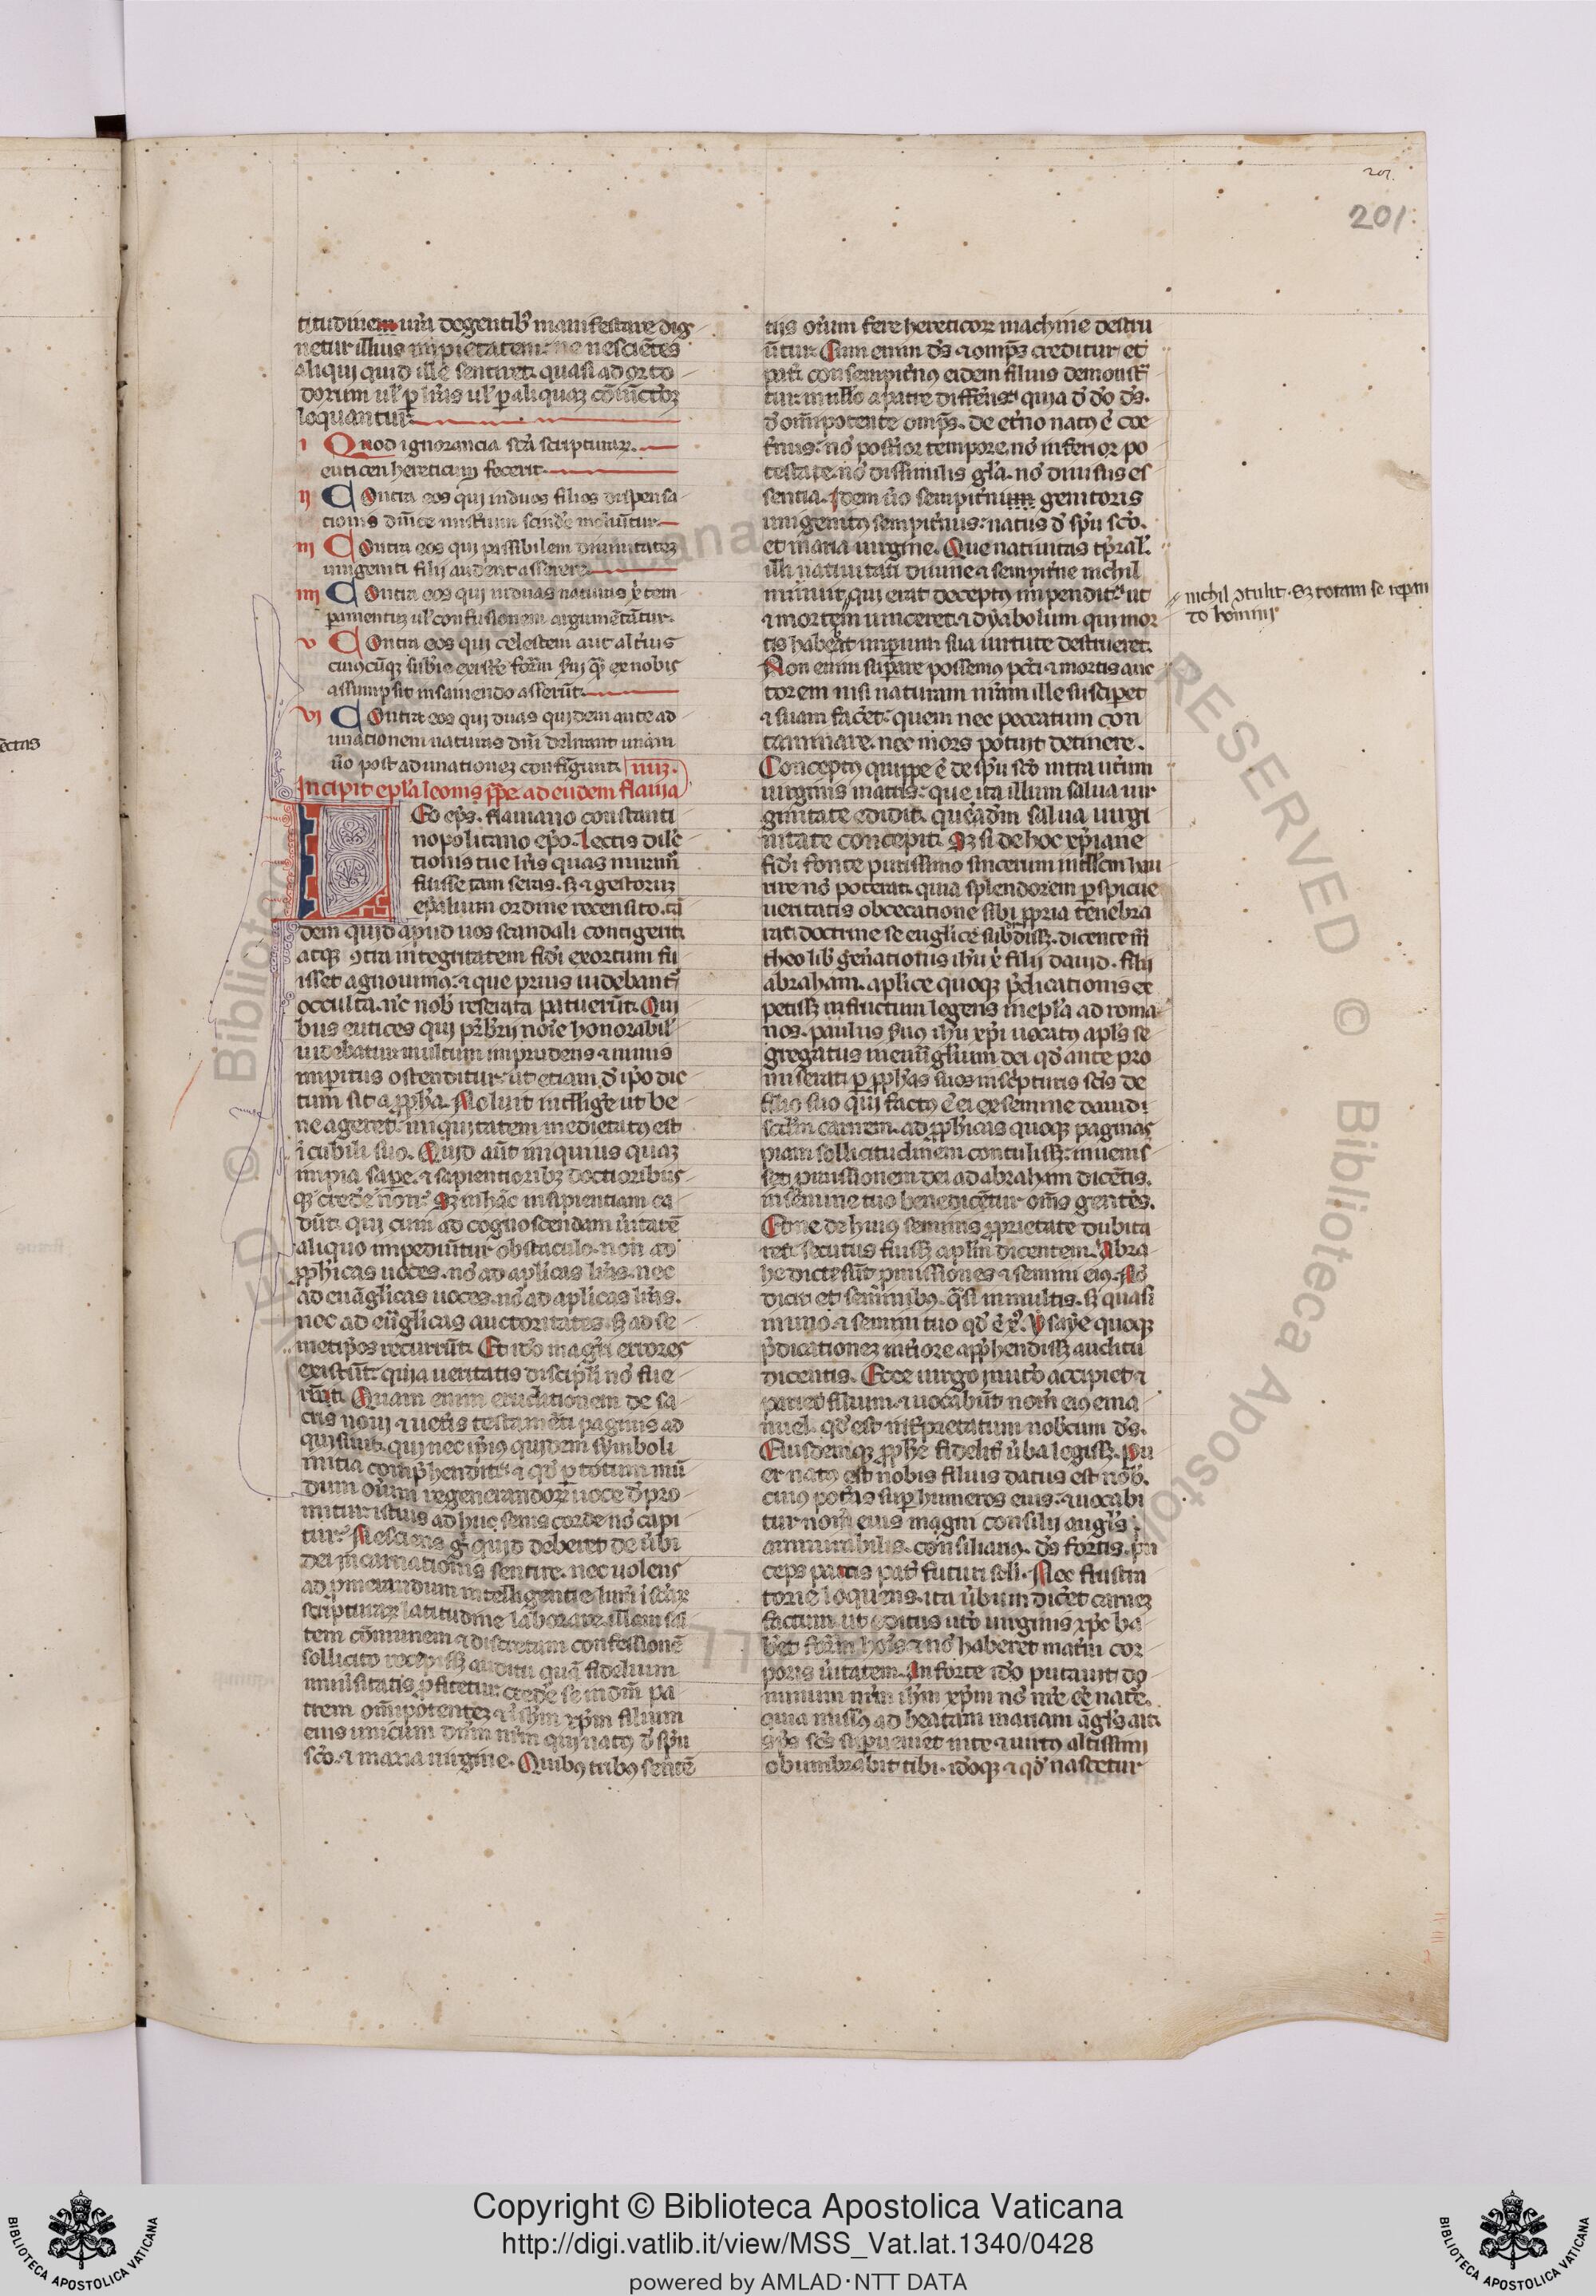 201
201
titudinem ur̃a degentib; manifestare dig
netur illius impietatem. ne nesciẽtes
aliqui quid ille sentiret. quasi ad orto
doxum ul' p lr̃as ul' p aliquaz cõiũctõez
loquantur.
i Quod ignorancia scr̃a scripturaꝝ.
euticen hereticum fecerit.
ii Contra eos qui in duos filios dispensa
tionis dñice misterium scindẽ moliũtur
iii Contra eos qui passibilem diuinitatez
unigeniti filij audent asserere
iiii Contra eos qui in duas naturas x̃ tem
pamentuz ul' confusionem argumẽtãtur.
v Contra eos qui celestem aut alterius
assumpsit insaniendo asserũt.
vi Contra eos qui duas quidem ante ad
unationem naturas dñi delirant unam
ũo post adunationez confingunt.
Incipit epl'a leonis pp̃e ad eudem flauia
Leo ep̃s. flauiano constanti
nopolitano ep̃o. Lectis dilc̃
tionis tue lr̃is quas miram̃
fuisse tam seras. sz ⁊ gestoruz
ep̃alium ordine recensito. tã
dem quid apud uos scandali contigerit.
atqz ꝯtra integritatem fidi exortum fu
isset agnouimꝰ. ⁊ que prius uidebant᷑
occulta. nc̃ nob̃ reserata patuerũt. Qui
bus eutices qui pr̃bri nõie honorabil'
uidebatur multum imprudens ⁊ nimis
imperitus ostenditur. ut etiam d̃ ip̃o dic
tum sit a ꝓph̃a. Noluit intellig̃e ut be
ne ageret. iniquitatem meditatꝰ est
i cubili suo. Quid aũt iniquius quaz
impia sape. ⁊ sapientioribz doctioribus
qz credẽ non. Sz in hãc insipientiam ca
dũt. qui cum ad cognoscendam ũitatẽ
aliquo impediũtur obstaculo. non ad
ꝓph̃icas uoces. nõ ad aplicas lr̃as. nec
ad euãglicas uoces. nõ ad aplicas lr̃as.
nec ad eũglicas auctoritates. sz ad se
metip̃os recurrũt. Et iõ magr̃i errores
existũt. quia ueritatis discipl'i nõ fue
rũt. Quam enim eruditionem de sa
cris noui ⁊ uetis testamẽti paginis ad
quisiuit. qui nec ip̃ius quidem symboli
initia comp̃hendit. ⁊ qd' p totum mũ
dum oĩum regenerandoꝝ uoce dep̃ro
mitur. istius adhuc senis corde nõ capi
tur. Nesciens g̃ quid deberet de ũbi
dei incarnationis sentire. nec uolens
ad pm̃erandum intelligentie lum̃ i scr̃aꝝ
scripturaꝝ latitudine laborare. illam sal
tem cõmunem ⁊ discretam confessionẽ
sollicito recepissz auditu. quã fidelium
uniũsitatis ꝓfitetur. credẽ se in dm̃ pa
trem om̃ipotentez ⁊ i ihm̃ xp̃m filium
eius unicum dñm nr̃m qui natꝰ d̃ sp̃u
sc̃o. ⁊ maria uirgine. Quibꝰ tribꝰ sentẽ
tiis oĩum fere hereticoꝝ machine destru
ũtur. Cum enim d̃s ⁊ omp̃s creditur et
pat̃. consempit̃nꝰ eidem filius demonst̃
tur. in nullo a patre differ̃s. quia d̃ dõ d̃s.
d̃ om̃ipotente omp̃s. de et̃no natꝰ ẽ coe
t̃nus. nõ post̃ior tempore. nõ inferior po
testate. nõ dissimilis gl'a. nõ diuisus es
sentia. Idem ũo sempit̃ni genitoris
unigenitꝰ sempit̃nus. natus d̃ sp̃u sc̃o.
et maria uirgine. Que natiuitas tp̃ral'.
illi natiuitati diuine ⁊ sempit̃ne nichil
minuit, qui erat deceptꝰ impendit. ut
⁊ mortem uinceret. ⁊ dyabolum qui mor
tis habebat imperium sua uirtute destrueret.
Non enim superare possemꝰ pcc̃i ⁊ mortis auc
torem nisi naturam nr̃am ille susciperet
⁊ suam facẽt. quem nec peccatum con
taminare. nec mors potuit detinere.
Conceptꝰ quippe ẽ de sp̃u sc̃o intra utẽum
uirginis matris. que ita illum salua uir
ginitate edidit. quẽadm̃ salua uirgi
nitate concepit. Sz si de hoc xp̃iane
fidi fonte purissimo sincerum intellc̃m hau
rire nõ poterat. quia splendorem perspicue
ueritatis obcecatione sibi ꝓpria tenebra
rat. doctrine se euglice subdissz. dicente m̃
theo lib' gẽnationis ihũ x̃ filij dauid. filij
abraham. aplice quoqz p̃dicationis ex
petissz instructum legens in epl'a ad roma
nos. paulus suꝰ ihũ xp̃i uocatꝰ apl's se
gregatus in euũglium dei qd' ante pro
miserat p ꝓph̃as suos in sc̃ipturis sc̃is de
filio suo qui factꝰ ẽ ei ex semine dauid
scdm̃ carnem. ad ꝓph̃icas quoqz paginas
piam sollicitudinem contulissz. inuenis
set pmissionem dei ad abraham dicẽtis.
in semine tuo benedicẽtur om̃s gentes.
Et ne de huiꝰ seminis ꝓprietate dubita
ret. secutus fuissz aplm̃ dicentem. Abra
he dicte sũt pmissiones ⁊ semini eiꝰ. Nõ
dicit et seminibꝰ. q̃si in multis. sz quasi
in uno. ⁊ semini tuo qd' ẽ x̃. Ysaye quoqz
p̃dicationez int̃iore app̃hendissz auditu
dicentis. Ecce uirgo in utõ accipiet ⁊
pariet filium. ⁊ uocabũt nom̃ eiꝰ ema
nuel. qd' est int̃pretatum nobcum d̃s.
Eiusdemqz ꝓph̃e fidelit̃ ũba legissz. Pu
er natꝰ est nobis filius datus est nob̃.
cuiꝰ potãs sup humeros eius. ⁊ uocabi
tur nom̃ eius magni consilij angl's
ammirabilis. consiliariꝰ. d̃s fortis. pn
ceps pacis pat̃ futuri scl'i. Nec frustra
torie loquens. ita ũbum dicẽt carnez
factum. ut editus utõ uirginis xp̃c ha
bẽt form̃ hois. ⁊ nõ haberet mat̃ni cor
poris ũitatem. An forte iõ putauit do
minum nr̃m ihm̃ xp̃m nõ nr̃e ẽe natẽ.
quia missꝰ ad beatam mariam ãgl's ait.
sp̃s sc̃s superueniet in te ⁊ uirtꝰ altissimi
obumbrabit tibi. iõqz ⁊ qd' nascetur
nichil ꝯtulit. sz totam se repan
to homini
Copyright © Biblioteca Apostolica Vaticana
http://digi.vatlib.it/view/MSS_Vat.lat.1340/0428
powered by AMLAD·NTT DATA
BIBLIOTECA APOSTOLICA VATICANA
BIBLIOTECA APOSTOLICA VATICANA